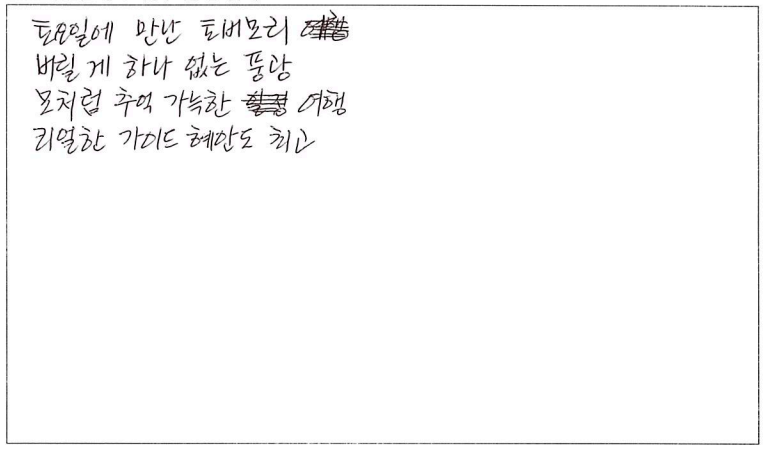 토요일에 만난 토버모리
버릴 게 하나 없는 풍광
모처럼 추억 가득한 여행
리얼한 가이드 혜안도 최고